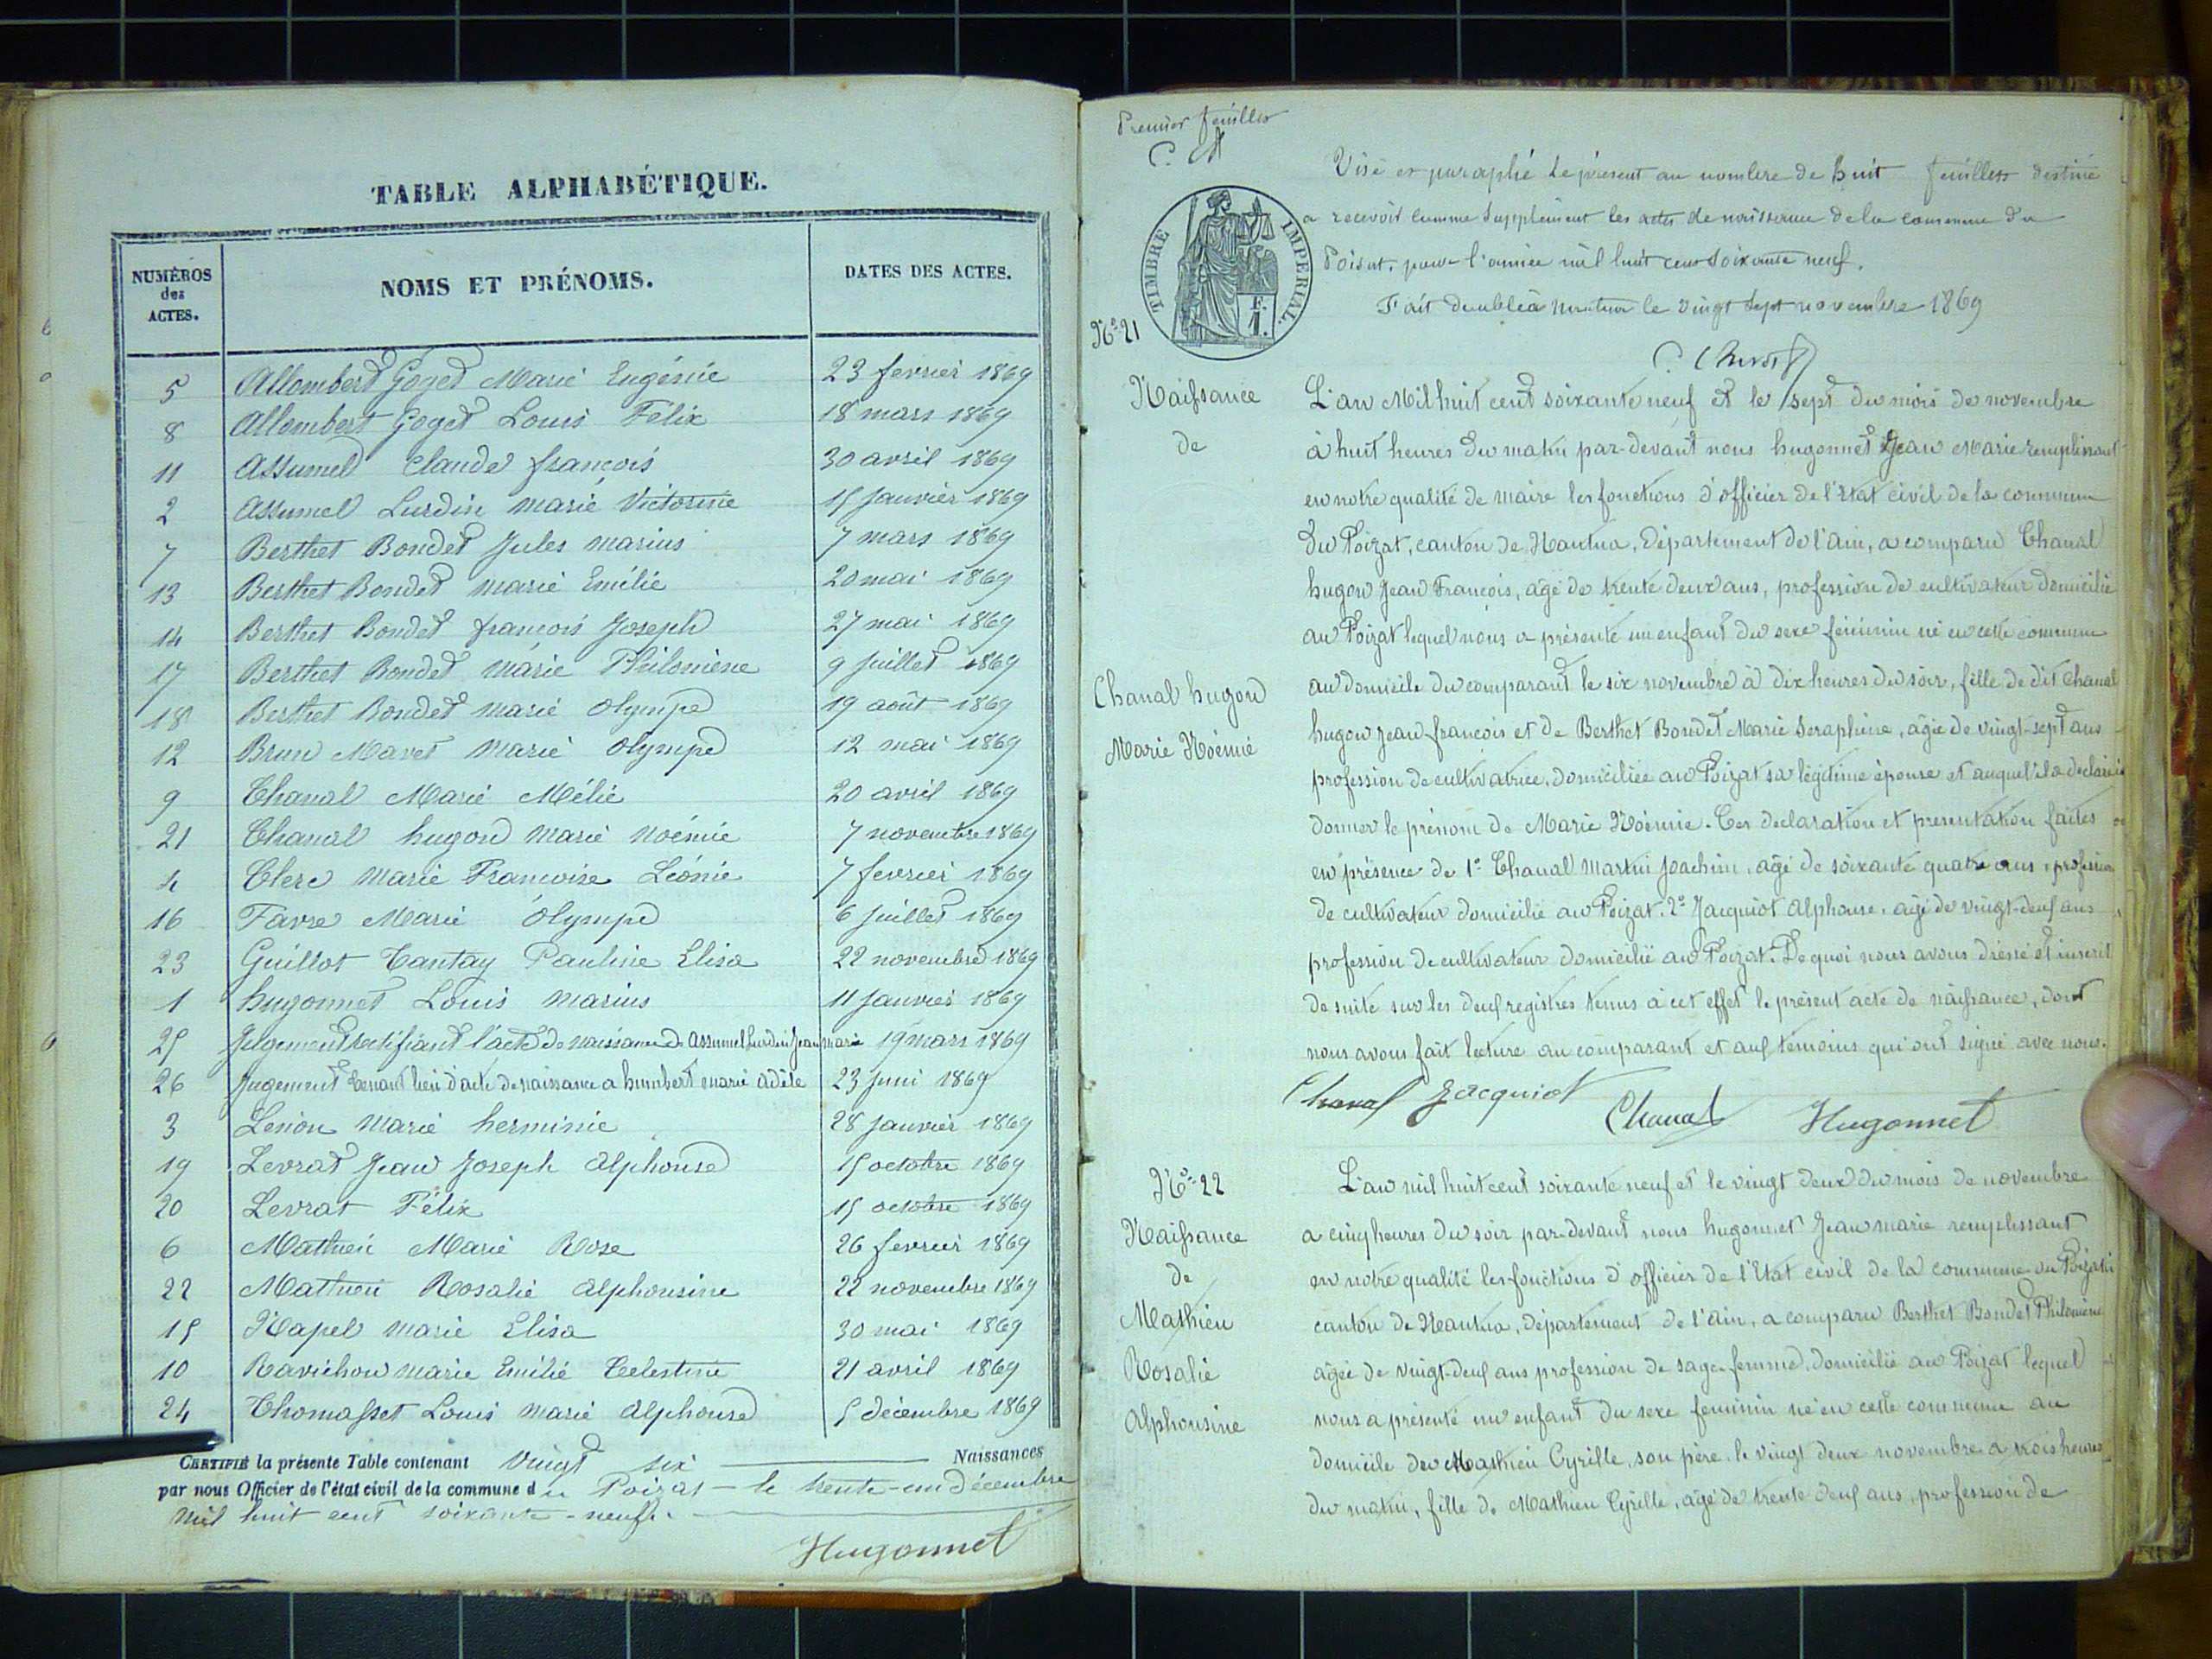 TABLE ALPHABÉTIQUE.
NUMÉROS des ACTES. NOMS ET PRÉNOMS. DATES DES ACTES.
5 Allombert Goget Marie Eugénie 23 fevrier 1869
8 Allombert Goget Louis Félix 18 mars 1869
11 Assumel Claude françois 30 avril 1869
2 Assumel Lurdin marie Victorine 15 Janvier 1869
7 Berthet Bondet Jules marius 7 mars 1869
13 Berthet Bondet marie Emélie 20 mai 1869
14 Berthet Bondet françois Joseph 27 mai 1869
17 Berthet Bondet marie Philomène 9 Juillet 1869
18 Berthet Bondet marie Olympe 19 août 1869
12 Brun Mavet Marie Olympe 12 mai 1869
9 Chanal Marie Mélie 20 avril 1869
21 Chanal hugon marie Noémie 7 novembre 1869
4 Clerc Marie Françoise Léonie 7 fevrier 1869
16 Favre Marie Olympe 6 Juillet 1869
23 Guillot Tantay Pauline Elisa 22 novembre 1869
1 hugonnet Louis marius 11 Janvier 1869
25 Jugement rectifiant l'acte de naissance de Assumel Lurdin Jean marie 19 mars 1869
26 Jugement tenant lieu d'acte de naissance a humbert marie adèle 23 Juin 1869
3 Lenion Marie herminie 28 Janvier 1869
19 Levrat Jean Joseph Alphonse 15 octobre 1869
20 Levrat Félix 15 octobre 1869
6 Mathieu Marie Rose 26 fevrier 1869
22 Mathieu Rosalie Alphonsine 22 novembre 1869
15 Napel marie Elisa 30 mai 1869
10 Ravichon marie Emélie Celestine 21 avril 1869
24 Thomasset Louis marie Alphonse 5 décembre 1869
CERTIFIÉ la présente Table contenant Vingt six Naissances
par nous Officier de l'état civil de la commune du Poizat le trente-un décembre
mil huit cent soixante-neuf.
Hugonnet
Premier feuillet
Visé et paraphé le présent au nombre de huit feuillets destiné
a recevoir comme supplément les actes de naissance de la commune du
Poisat, pour l'année mil huit cent soixante neuf.
Fait double à Nantua le vingt sept novembre 1869
TIMBRE IMPÉRIAL.
F.
1.
No 21
Naissance
de
Chanal hugon
Marie Noémie
L'an Mil huit cent soixante neuf et le sept du mois de novembre
à huit heures du matin par-devant nous hugonnet Jean Marie remplissant
en notre qualité de maire les fonctions d'officier de l'Etat civil de la commune
du Poizat, canton de Nantua, Département de l'Ain, a comparu Chanal
hugon Jean François, âgé de trente deux ans, profession de cultivateur domicilié
au Poizat lequel nous a présenté un enfant du sexe féminin né en cette commune
au domicile du comparant le six novembre à dix heures du soir, fille de dit Chanal
hugon Jean françois et de Berthet Bondet Marie Seraphine, âgée de vingt-sept ans
profession de cultivatrice, domiciliée au Poizat sa légitime épouse et auquel il a déclaré
donner le prénom de Marie Noémie. Ces declaration et presentation faites
en présence de 1° Chanal Martin Joachim, âgé de soixante quatre ans, profession
de cultivateur domicilié au Poizat. 2° Jacquiot Alphonse, âgé de vingt-neuf ans
profession de cultivateur domicilié au Poizat. De quoi nous avons dressé et inscrit
de suite sur les deux registres tenus à cet effet le présent acte de naissance, dont
nous avons fait lecture au comparant et aux témoins qui ont signé avec nous.
Chanal Jacquiot Chanal Hugonnet
No 22
Naissance
de
Mathieu
Rosalie
Alphonsine
L'an mil huit cent soixante neuf et le vingt deux du mois de novembre
a cinq heures du soir par-devant nous hugonnet Jean marie remplissant
en notre qualité les fonctions d'officier de l'Etat civil de la commune du Poizat
canton de Nantua, département de l'Ain, a comparu Berthet Bondet Philomène
âgée de vingt-neuf ans profession de sage-femme, domicilié au Poizat lequel
nous a présenté un enfant du sexe feminin né en cette commune au
domicile de Mathieu Cyrille, son père, le vingt deux novembre a trois heures
du matin, fille de Mathieu Cyrille, âgé de trente neuf ans, profession de